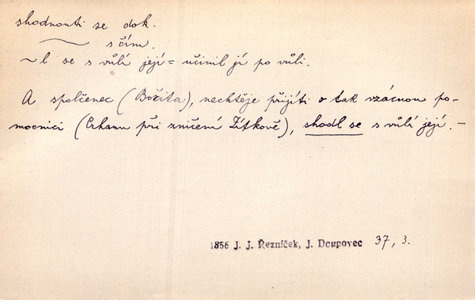 shodnouti se dok.
~ s čím.
~l se s vůlí její = učinil jí po vůli.
A společenec (Bořita), nechtěje přijíti o tak vzácnou po-
mocnici (Erhanu při zničení Žitkově), shodl se s vůlí její. —
1856 J. J. Řezníček, J. Doupovec 37, 3.